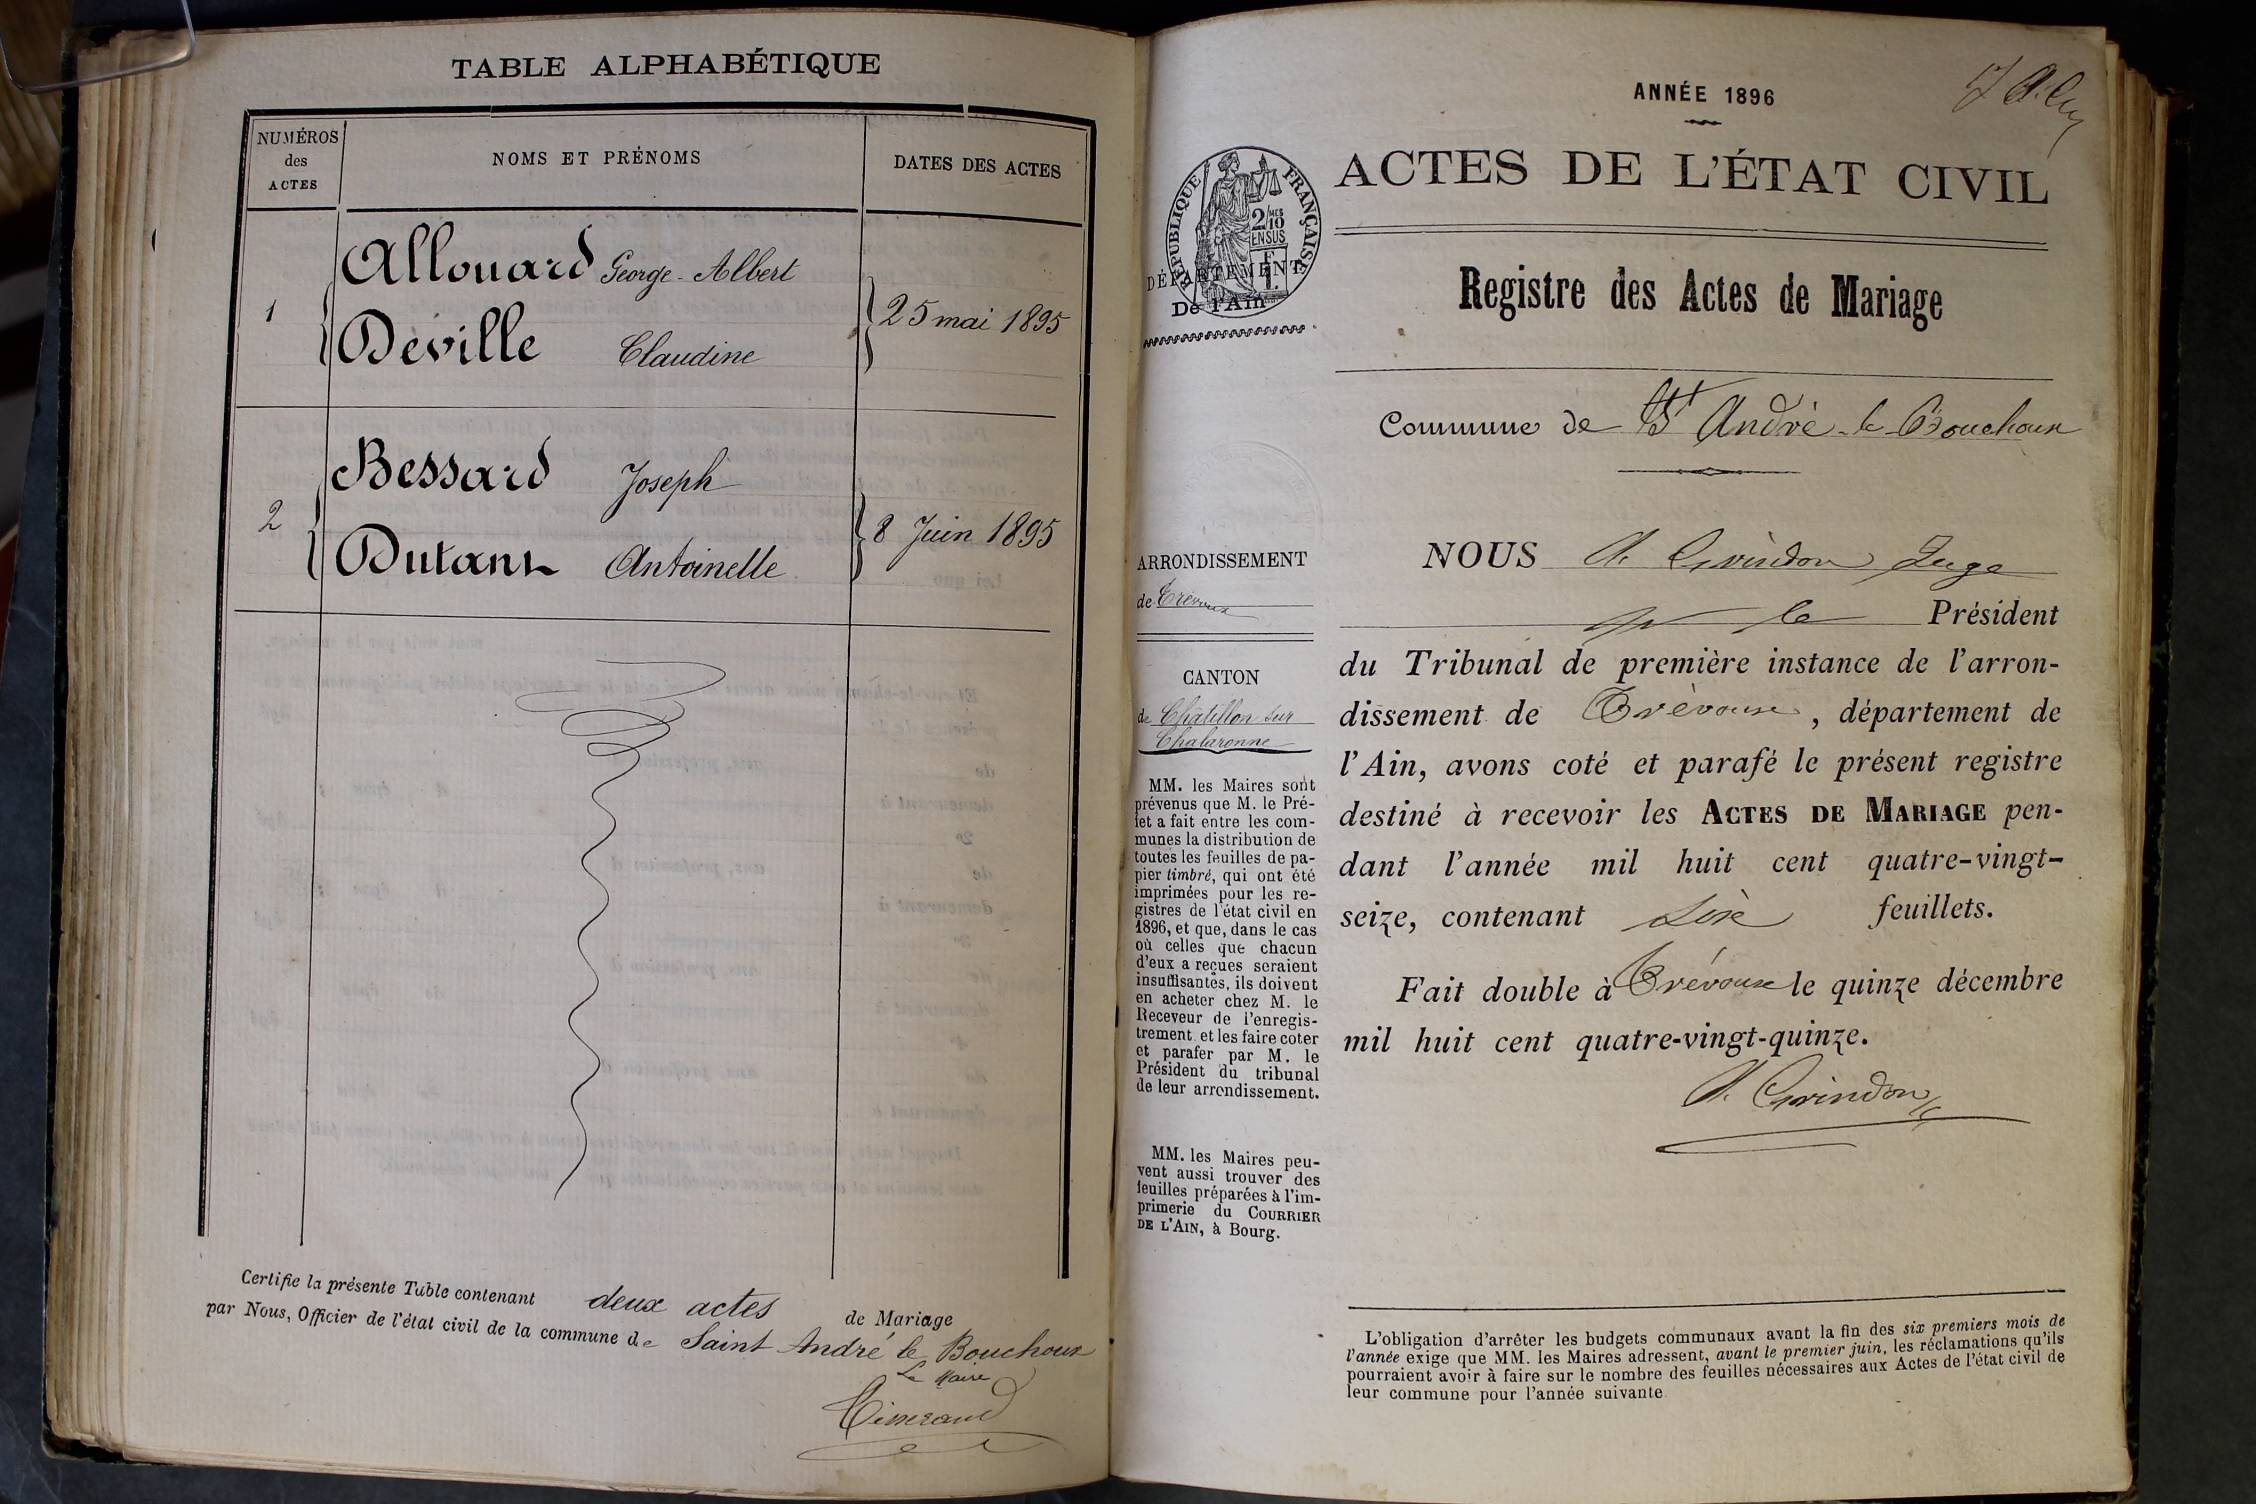 TABLE ALPHABÉTIQUE
NUMÉROS
des
ACTES
NOMS ET PRÉNOMS
DATES DES ACTES
Allouard George-Albert
1
25 mai 1895
Déville Claudine
Bessard Joseph
2
8 Juin 1895
Dutant Antoinette
Certifie la présente Table contenant deux actes de Mariage
par Nous, Officier de l'état civil de la commune de Saint André le Bouchoux
Le Maire
Tisserand
ANNÉE 1896
ACTES DE L'ÉTAT CIVIL
RÉPUBLIQUE FRANÇAISE
2/10
MES
EN SUS
DÉPARTEMENT
De l'Ain
Registre des Actes de Mariage
Commune de St André-le-Bouchoux
ARRONDISSEMENT
de Trévoux
CANTON
de Châtillon sur
Chalaronne
MM. les Maires sont
prévenus que M. le Pré-
fet a fait entre les com-
munes la distribution de
toutes les feuilles de pa-
pier timbré, qui ont été
imprimées pour les re-
gistres de l'état civil en
1896, et que, dans le cas
où celles que chacun
d'eux a reçues seraient
insuffisantes, ils doivent
en acheter chez M. le
Receveur de l'enregis-
trement et les faire coter
et parafer par M. le
Président du tribunal
de leur arrondissement.
MM. les Maires peu-
vent aussi trouver des
feuilles préparées à l'im-
primerie du COURRIER
DE L'AIN, à Bourg.
NOUS A. Grindon Juge
pr le Président
du Tribunal de première instance de l'arron-
dissement de Trévoux, département de
l'Ain, avons coté et parafé le présent registre
destiné à recevoir les ACTES DE MARIAGE pen-
dant l'année mil huit cent quatre-vingt-
seize, contenant feuillets.
Fait double à Trévoux le quinze décembre
mil huit cent quatre-vingt-quinze.
A. Grindon
L'obligation d'arrêter les budgets communaux avant la fin des six premiers mois de
l'année exige que MM. les Maires adressent, avant le premier juin, les réclamations qu'ils
pourraient avoir à faire sur le nombre des feuilles nécessaires aux Actes de l'état civil de
leur commune pour l'année suivante